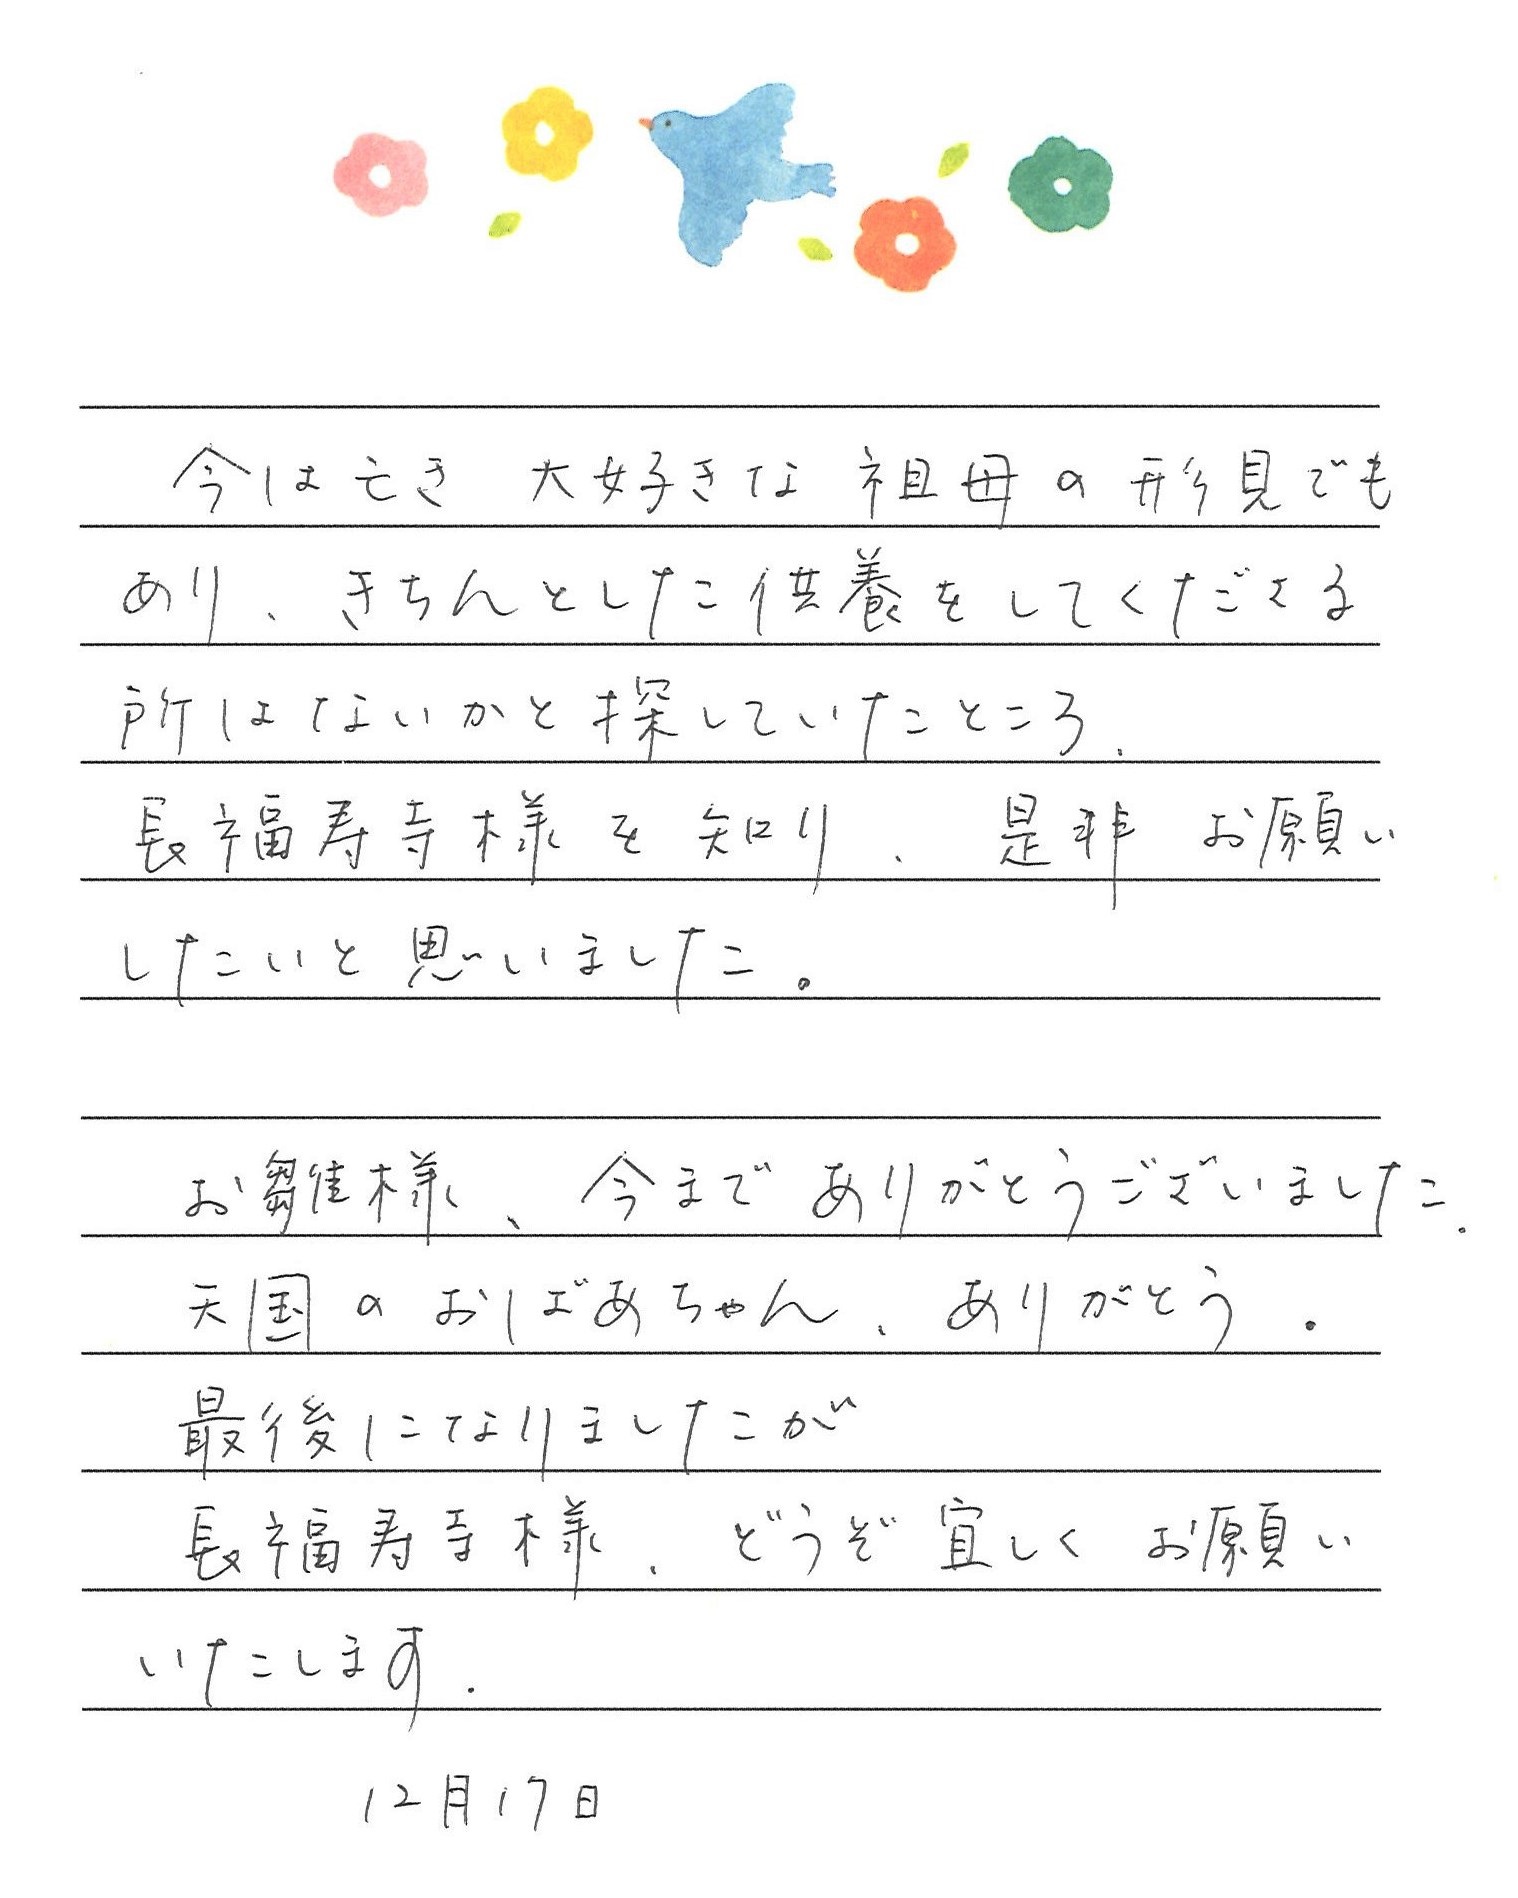 今は亡き 大好きな祖母の形見でも
あり、きちんとした供養をしてくださる
所はないかと探していたところ、
長福寿寺様を知り、是非お願い
したいと思いました。
お雛様、今までありがとうございました。
天国のおばあちゃん、ありがとう。
最後になりましたが
長福寿寺様、どうぞ宜しくお願い
いたします。
12月17日